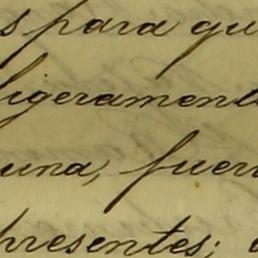 s para qu
ligeramente
una, fuer
presentes;